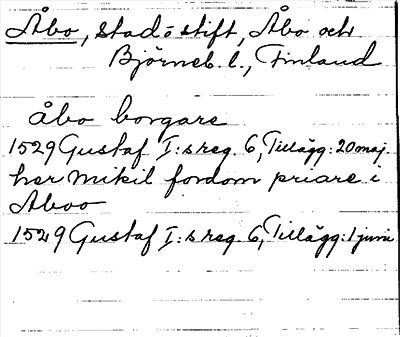 Åbo, stad o stift, Åbo och
Björneb. l., Finland
åbo borgare
1529 Gustaf I:s reg. 6, Tillägg: 20 maj.
her Mikil fordom priare i
Aboo
1529 Gustaf I:s reg. 6, Tillägg: 1 juni